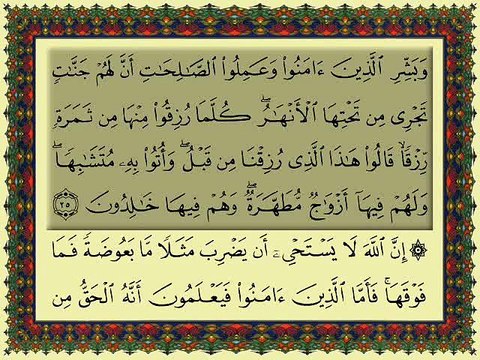 وَبَشِّرِ ٱلَّذِينَ ءَامَنُوا۟ وَعَمِلُوا۟ ٱلصَّـٰلِحَـٰتِ أَنَّ لَهُمْ جَنَّـٰتٍ
تَجْرِى مِن تَحْتِهَا ٱلْأَنْهَـٰرُ ۖ كُلَّمَا رُزِقُوا۟ مِنْهَا مِن ثَمَرَةٍ
رِّزْقًا ۙ قَالُوا۟ هَـٰذَا ٱلَّذِى رُزِقْنَا مِن قَبْلُ ۖ وَأُتُوا۟ بِهِۦ مُتَشَـٰبِهًا ۖ
وَلَهُمْ فِيهَآ أَزْوَٰجٌ مُّطَهَّرَةٌ ۖ وَهُمْ فِيهَا خَـٰلِدُونَ ٢٥
۞ إِنَّ ٱللَّهَ لَا يَسْتَحْىِۦٓ أَن يَضْرِبَ مَثَلًا مَّا بَعُوضَةً فَمَا
فَوْقَهَا ۚ فَأَمَّا ٱلَّذِينَ ءَامَنُوا۟ فَيَعْلَمُونَ أَنَّهُ ٱلْحَقُّ مِن